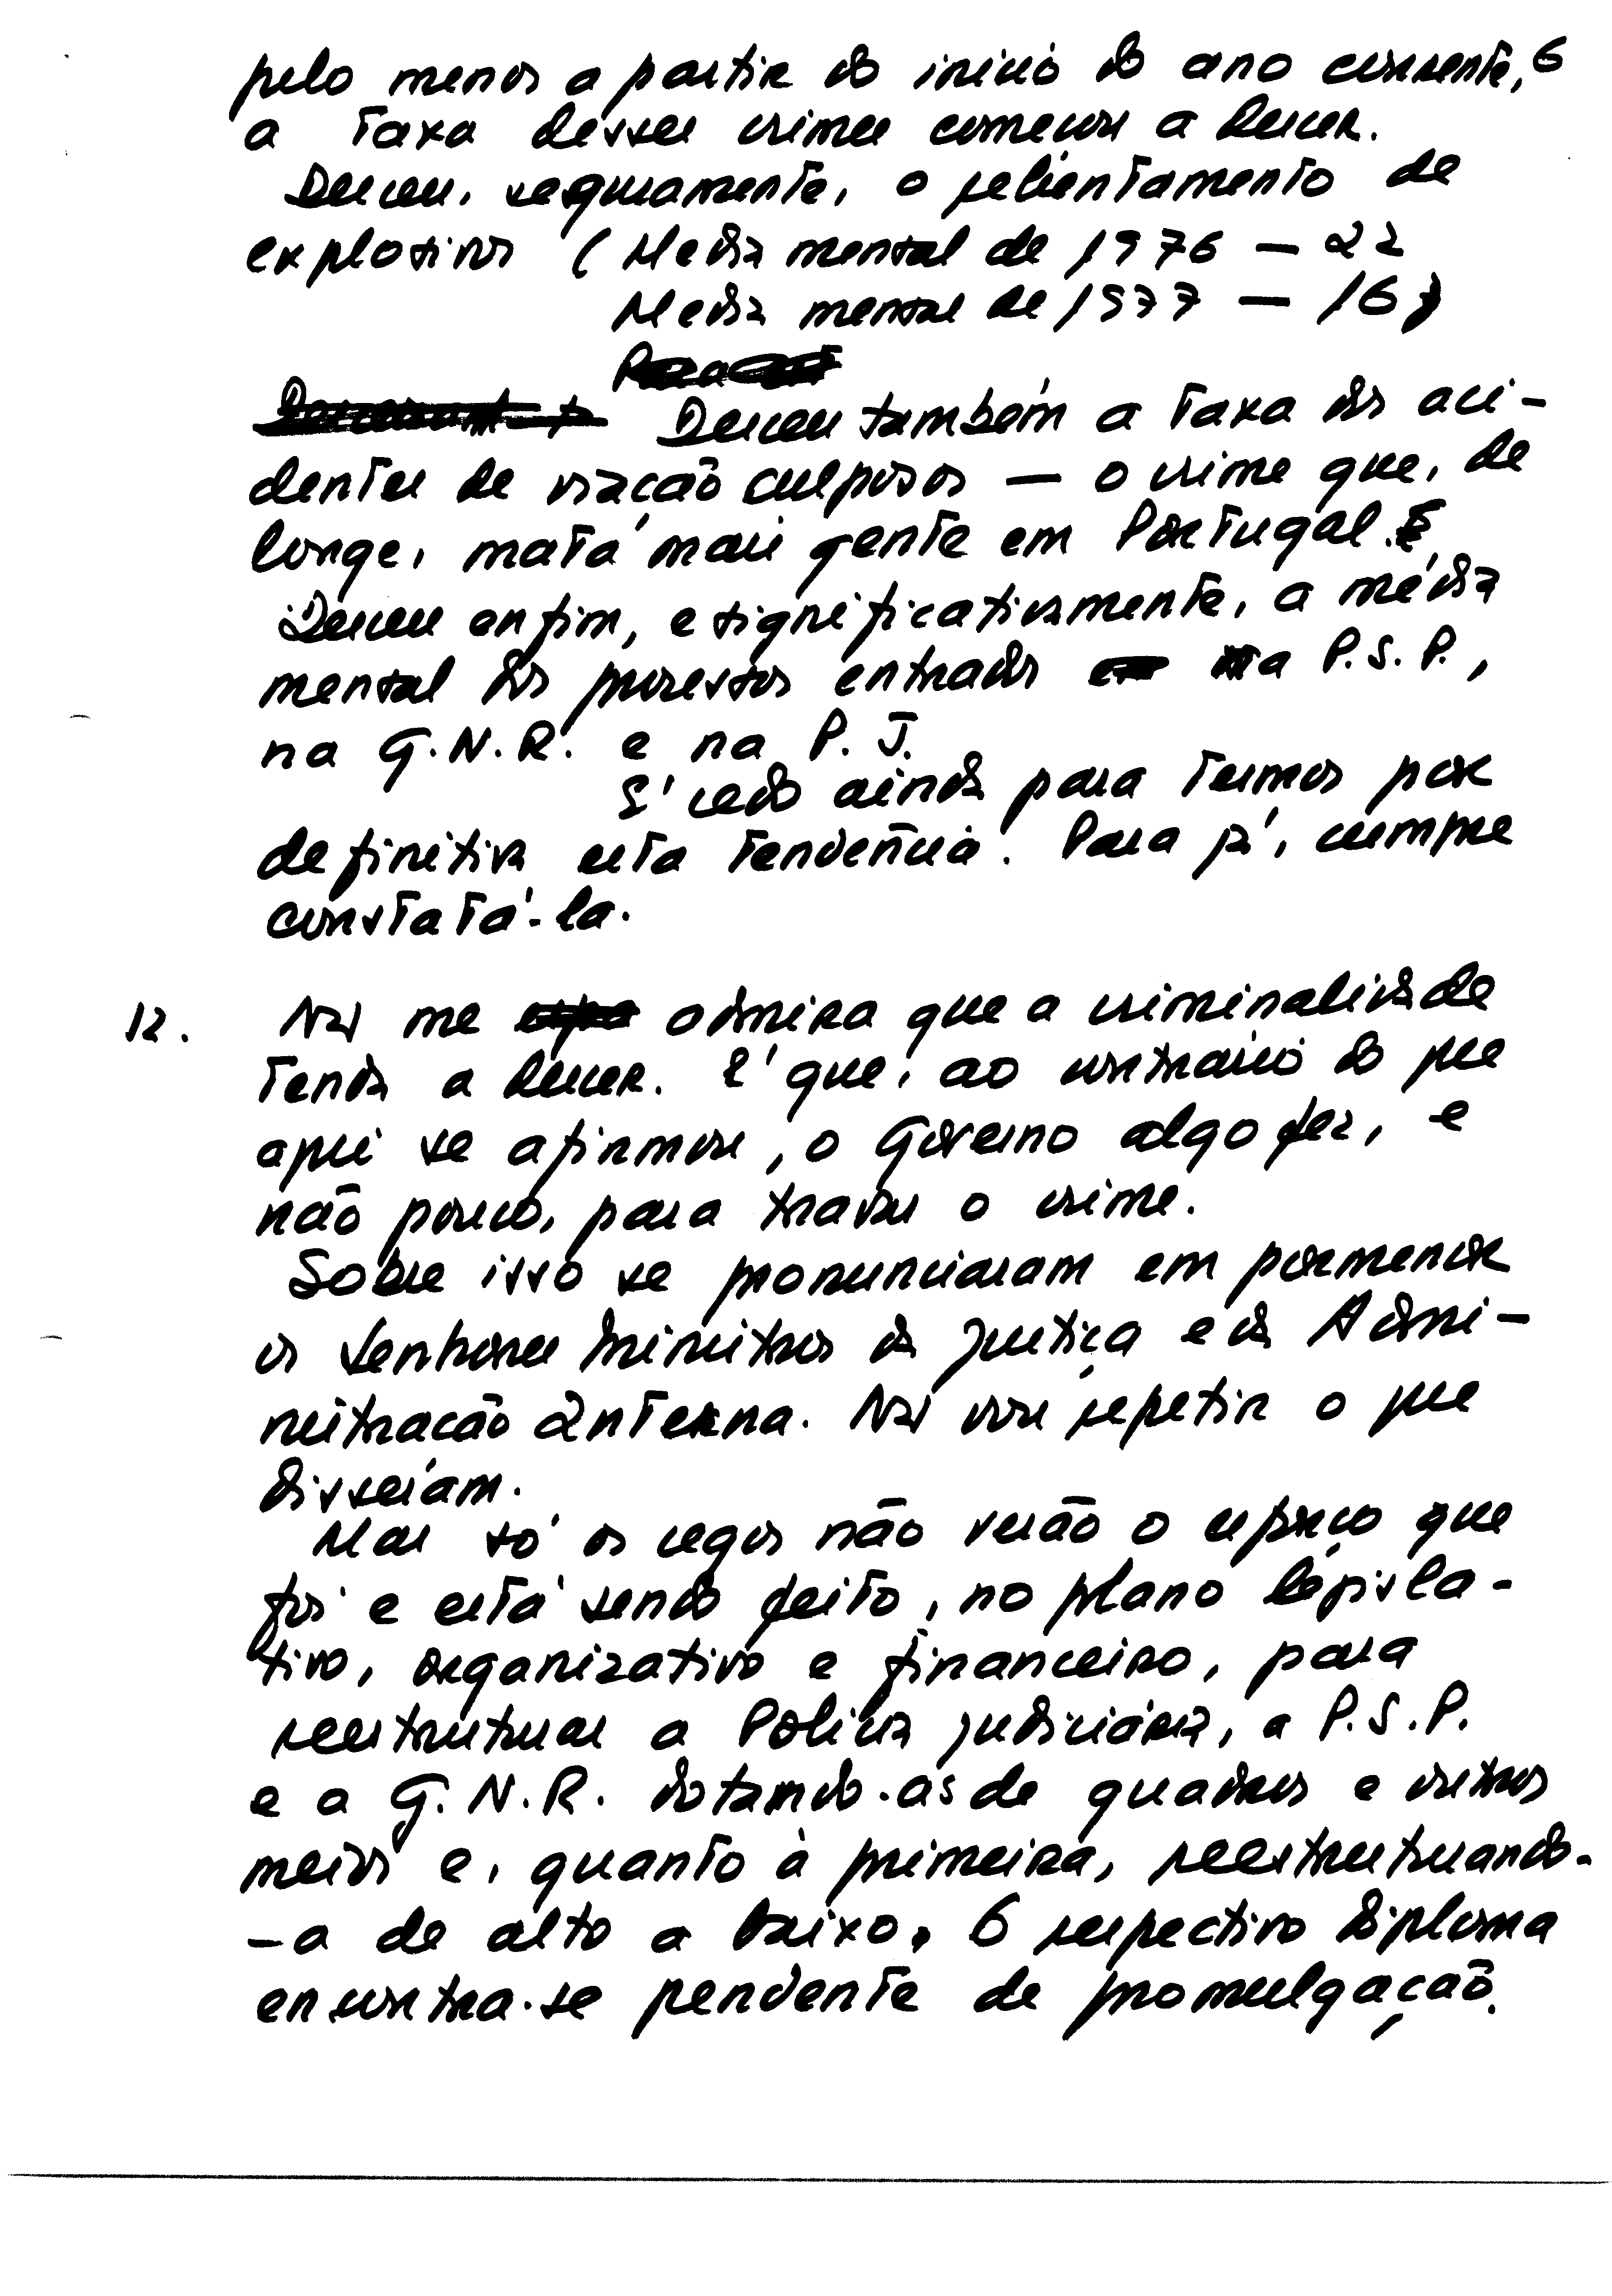 pelo menos a partir do início do ano corrente, 6
a taxa desses crimes começou a descer.
Desceu, seguramente, o rebentamento de
explosivos (Media mensal de 1976 — 22
Media mensal de 1977 — 16)
Desceu também a taxa dos aci-
dentes de viação culposos — o crime que, de
longe, matá mais gente em Portugal.
Desceu enfim, e significativamente, a média
mensal dos processos entrados na P.S.P.,
na G.N.R. e na P. J.
É cedo ainda para termos por
definitiva esta tendência. Para já, cumpre
constatá-la.
12. Não me admira que a criminalidade
tenda a descer. É que, ao contrário do que
aqui se afirmou, o Governo algo fez, e
não pouco, para travar o crime.
Sobre isso se pronunciaram em pormenor
os Senhores Ministros da Justiça e da Admi-
nistração Interna. Não vou repetir o que
disseram.
Mas só os cegos não verão o esforço que
foi e está sendo feito, no plano legisla-
tivo, organizativo e financeiro, para
reestruturar a Polícia Judiciária, a P.S.P.
e a G.N.R. dotando-as de quadros e outros
meios e, quanto à primeira, reestruturando-
-a de alto a baixo. O respectivo diploma
encontra-se pendente de promulgação.